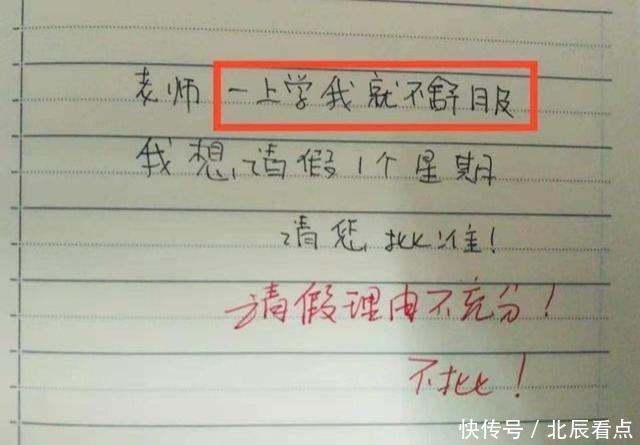 老师一上学我就不舒服
我想请假1个星期
请您批准!
请假理由不充分!
不批!
快传号/北辰看点